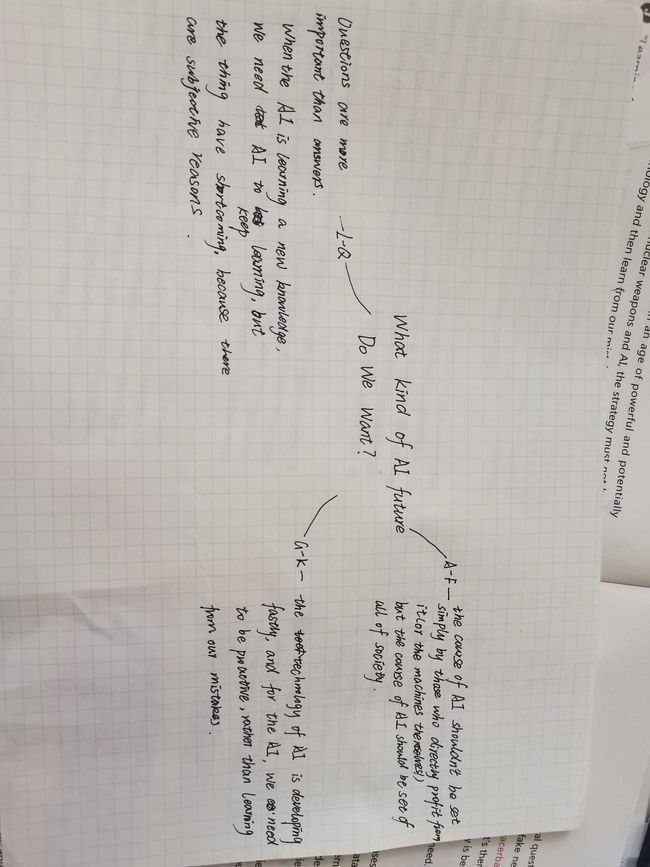 What kind of AI future
Do We Want?
A-F — the course of AI shouldn't be set
simply by those who directly profit from
it (or the machines themselves)
but the course of AI should be set of
all of society.
G-K — the technology of AI is developing
fastly, and for the AI, we need
to be proactive, rather than learning
from our mistakes.
L-Q
Questions are more
important than answers.
When the AI is learning a new knowledge,
we need AI to keep learning, but
the thing have shortcoming, because there
are subjective reasons.
in an age of powerful and potentially
nuclear weapons and AI, the strategy must not
nology and then learn from our
al ques
fake ne
acerba
t's ther
y is be
need